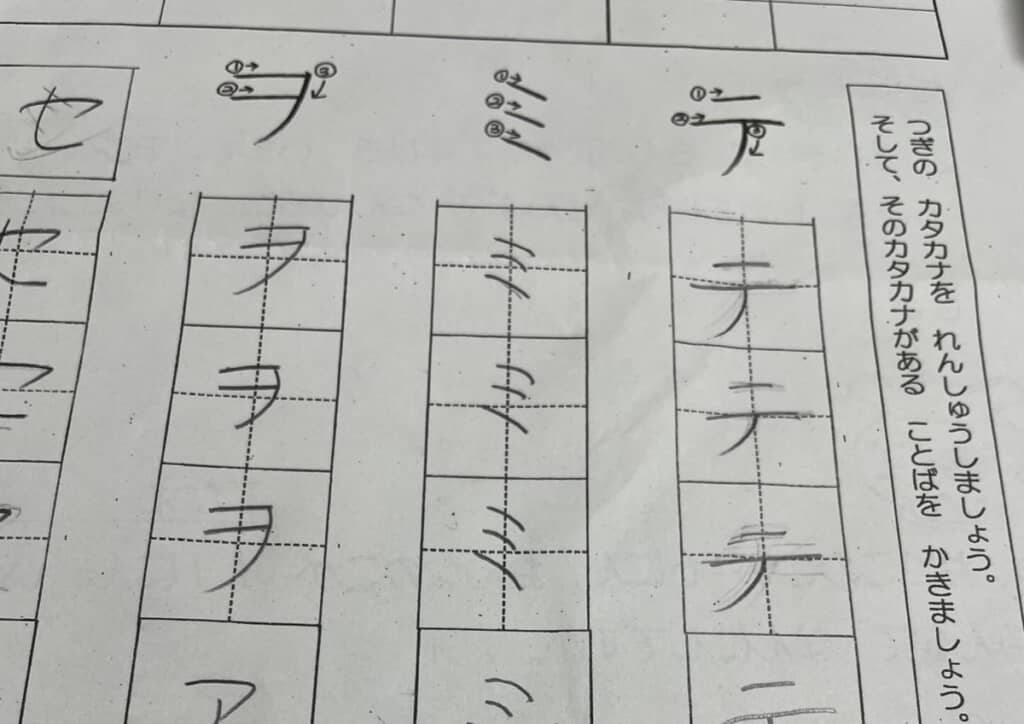 つぎの カタカナを れんしゅうしましょう。
そして、そのカタカナがある ことばを かきましょう。
①→ ②→ ③↓
テ
テ
テ
テ
①→ ②→ ③→
ミ
ミ
ミ
ミ
①→ ②→ ③↓
ヲ
ヲ
ヲ
ヲ
セ
セ